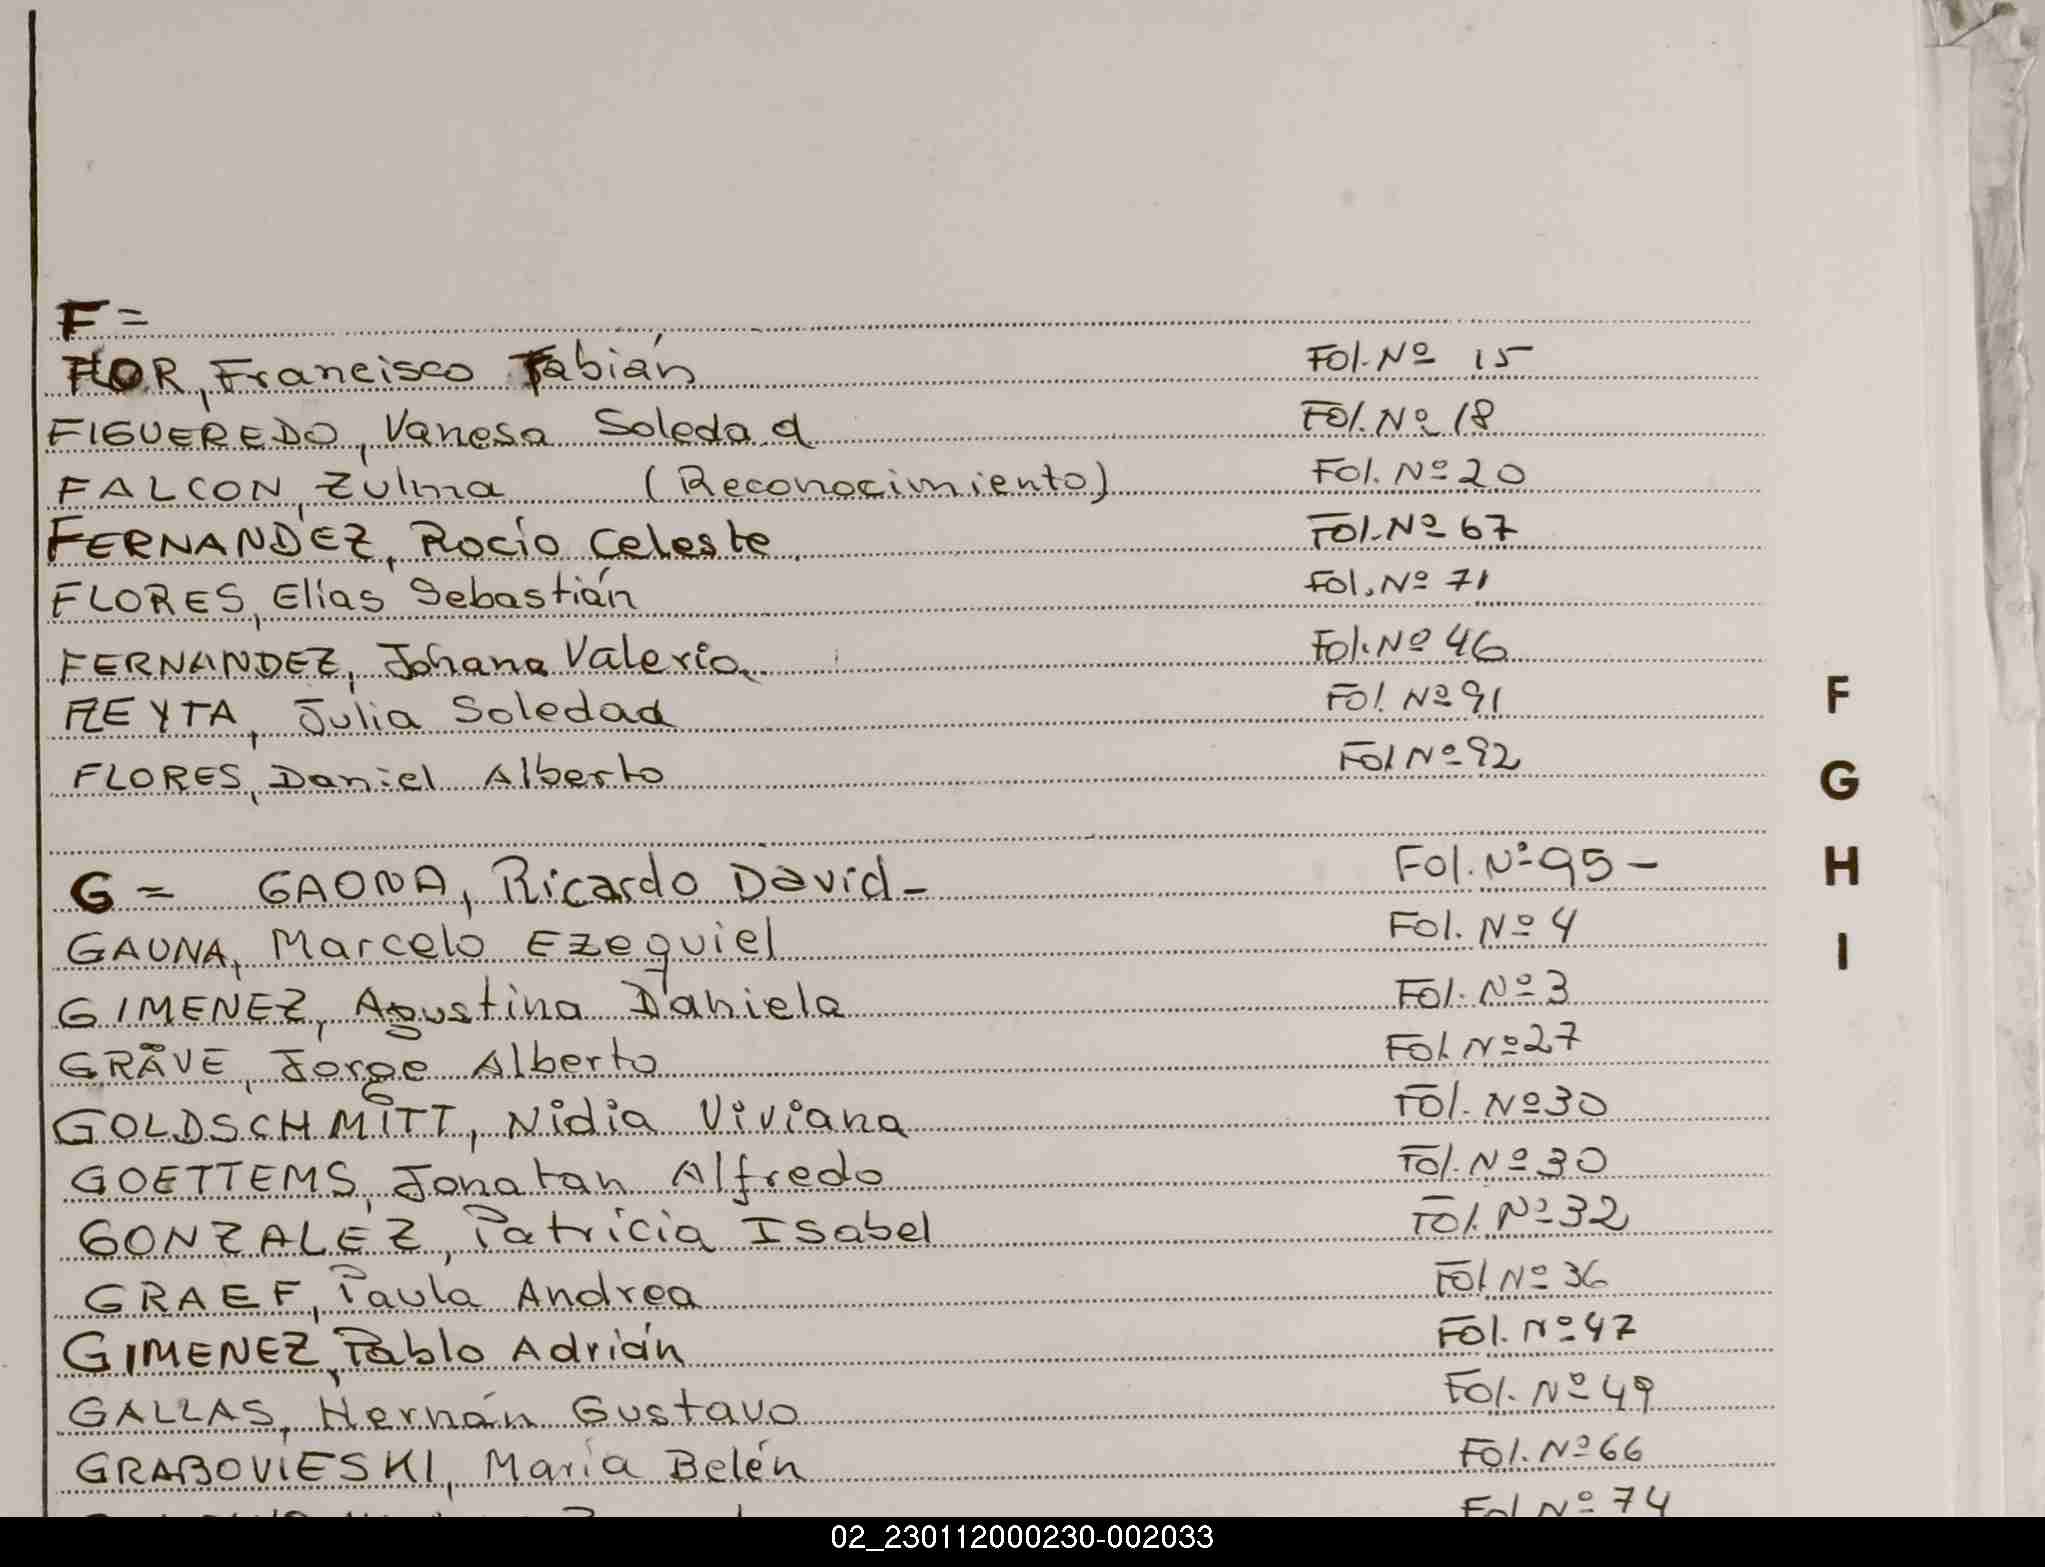 F=
FLOR, Francisco Fabián Fol. Nº 15
FIGUEREDO, Vanesa Soledad Fol. Nº 18
FALCON, Zulma (Reconocimiento) Fol. Nº 20
FERNANDEZ, Rocío Celeste Fol. Nº 67
FLORES, Elías Sebastián Fol. Nº 71
FERNANDEZ, Johana Valeria Fol. Nº 46
FLEYTA, Julia Soledad Fol. Nº 91
F
FLORES, Daniel Alberto Fol Nº 92
G
G = GAONA, Ricardo David- Fol. Nº 95 -
H
GAUNA, Marcelo Ezequiel Fol. Nº 4
I
GIMENEZ, Agustina Daniela Fol. Nº 3
GRÄVE, Jorge Alberto Fol. Nº 27
GOLDSCHMITT, Nidia Viviana Fol. Nº 30
GOETTEMS, Jonatan Alfredo Fol. Nº 30
GONZALEZ, Patricia Isabel Fol. Nº 32
GRAEF, Paula Andrea Fol Nº 36
GIMENEZ, Pablo Adrián Fol. Nº 47
GALLAS, Hernán Gustavo Fol. Nº 49
GRABOVIESKI, María Belén Fol. Nº 66
Fol Nº 74
02_230112000230-002033